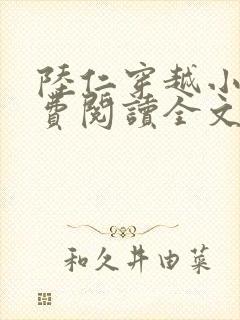 陸仁穿越小
費閱讀全文
和久井由菜